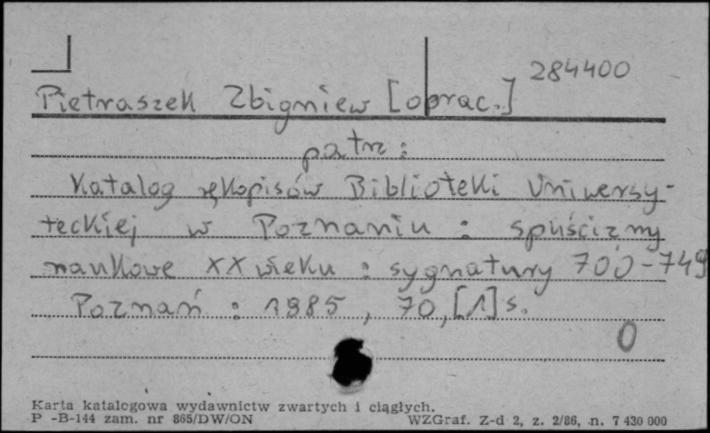 284400
Pietraszek Zbigniew [oprac.]
patrz:
Katalog rękopisów Biblioteki Uniwersy-
teckiej w Poznaniu : spuścizny
naukowe XX wieku : sygnatury 700-749
Poznań : 1985, 70, [1] s.
0
Karta katalogowa wydawnictw zwartych i ciągłych.
P -B-144 zam. nr 865/DW/ON WZGraf. Z-d 2, z. 2/86, n. 7 430 000